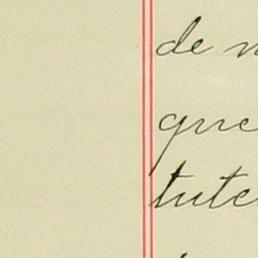 de
que
tute